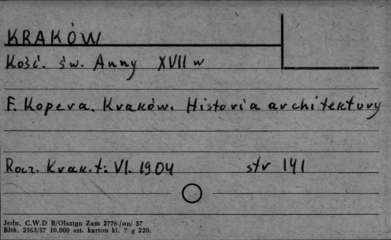 KRAKÓW
Kość. św. Anny XVII w
F. Kopera. Kraków. Historia architektury
Rocz. Krak. t: VI. 1904 str 141
Jedn. C.W.D B/Olsztyn Zam 2776/on/ 57
Bltk. 2563/57 10.000 szt. karton kl. 7 g 220.